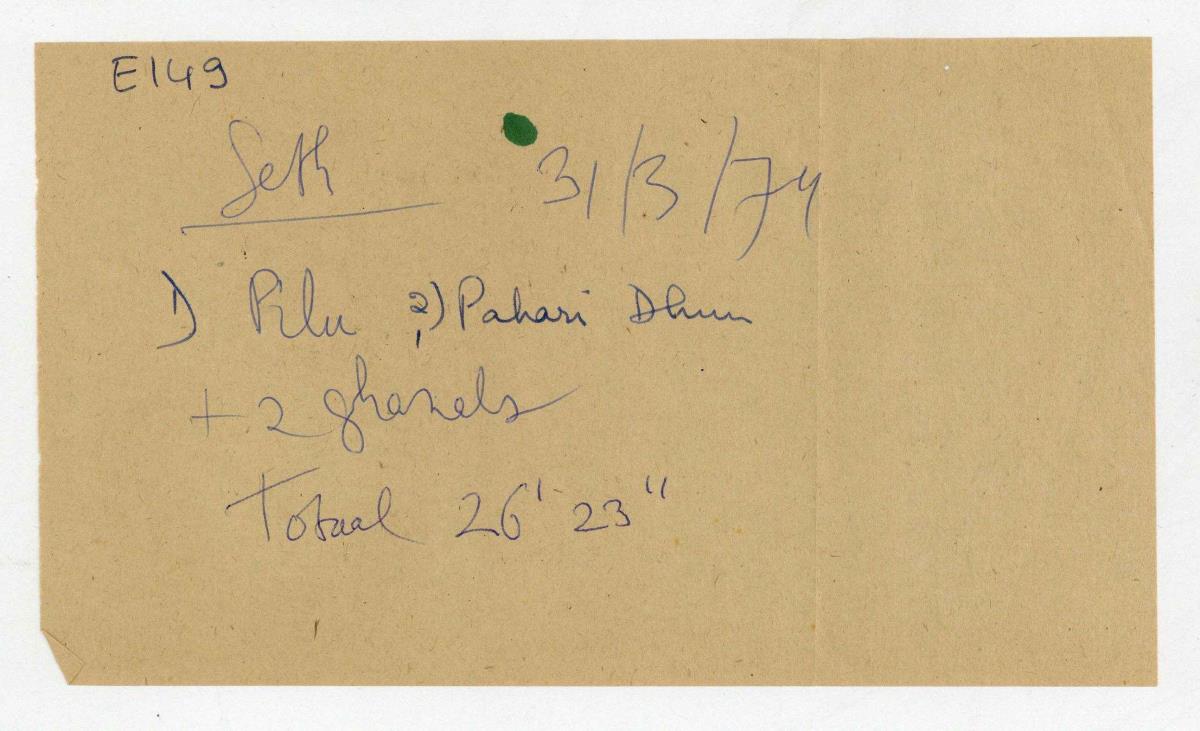 E149
Seth 31/3/74
1) Pilu 2) Pahari Dhun
+ 2 ghazals
Totaal 26' 23"